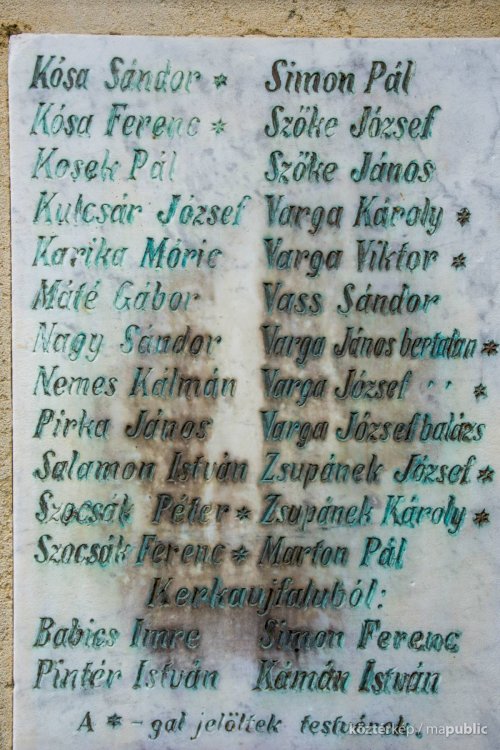 Kósa Sándor * Simon Pál
Kósa Ferenc * Szőke József
Kosek Pál Szőke János
Kulcsár József Varga Károly *
Karika Móric Varga Viktor *
Máté Gábor Vass Sándor
Nagy Sándor Varga János bertalan *
Nemes Kálmán Varga József ·· *
Pirka János Varga József balázs
Salamon István Zsupánek József *
Szocsák Péter * Zsupánek Károly *
Szocsák Ferenc * Marton Pál
Kerkaujfaluból:
Babics Imre Simon Ferenc
Pintér István Kámán István
A * - gal jelöltek testvérek.
köztérkép / mapublic